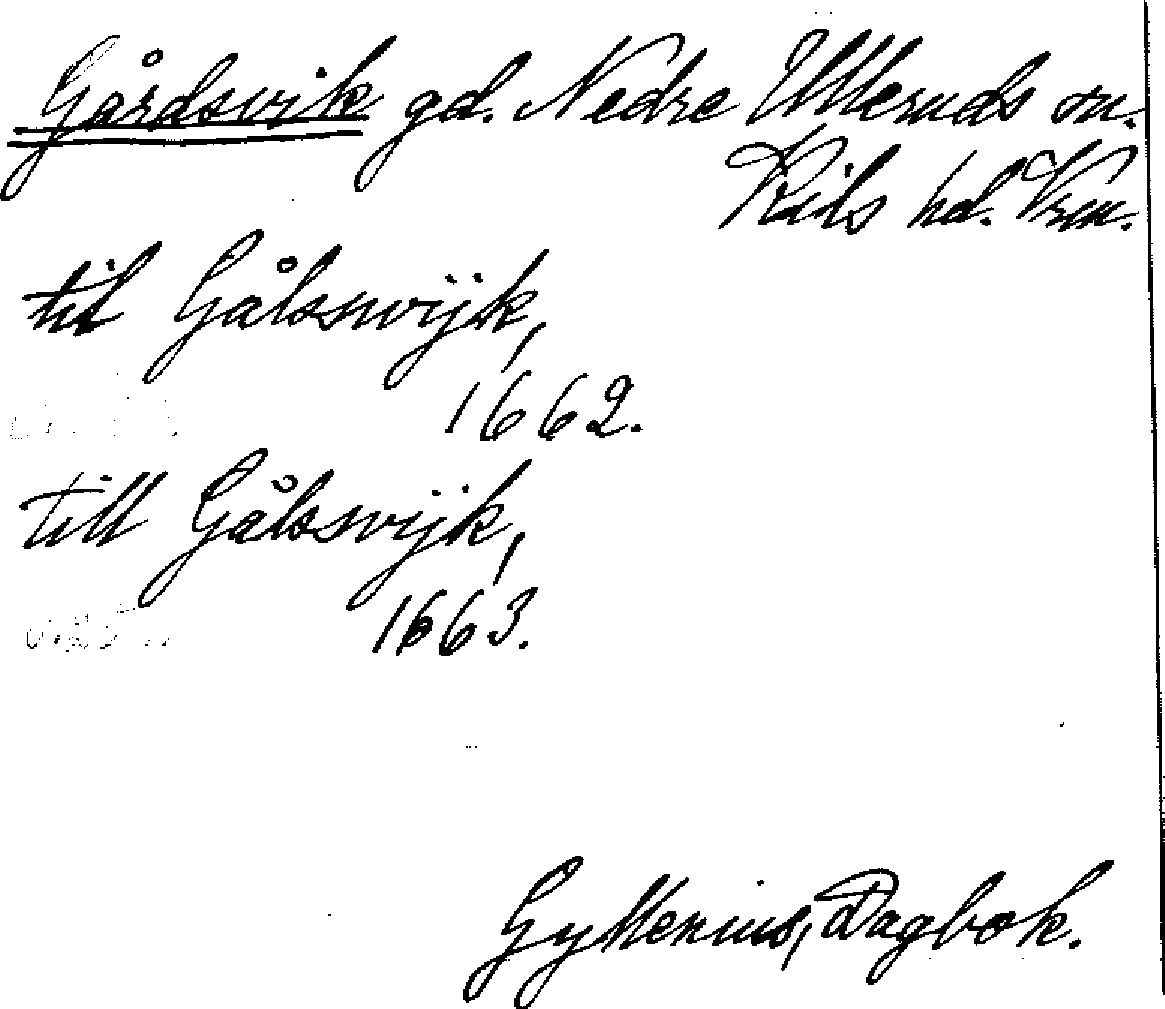 Gårdsvik gd. Nedre Ulleruds sn.
Kils hd. Vrm.
til Gålsswijk,
1662.
till Gålsswijk,
1663.
Gyllenius, Dagbok.